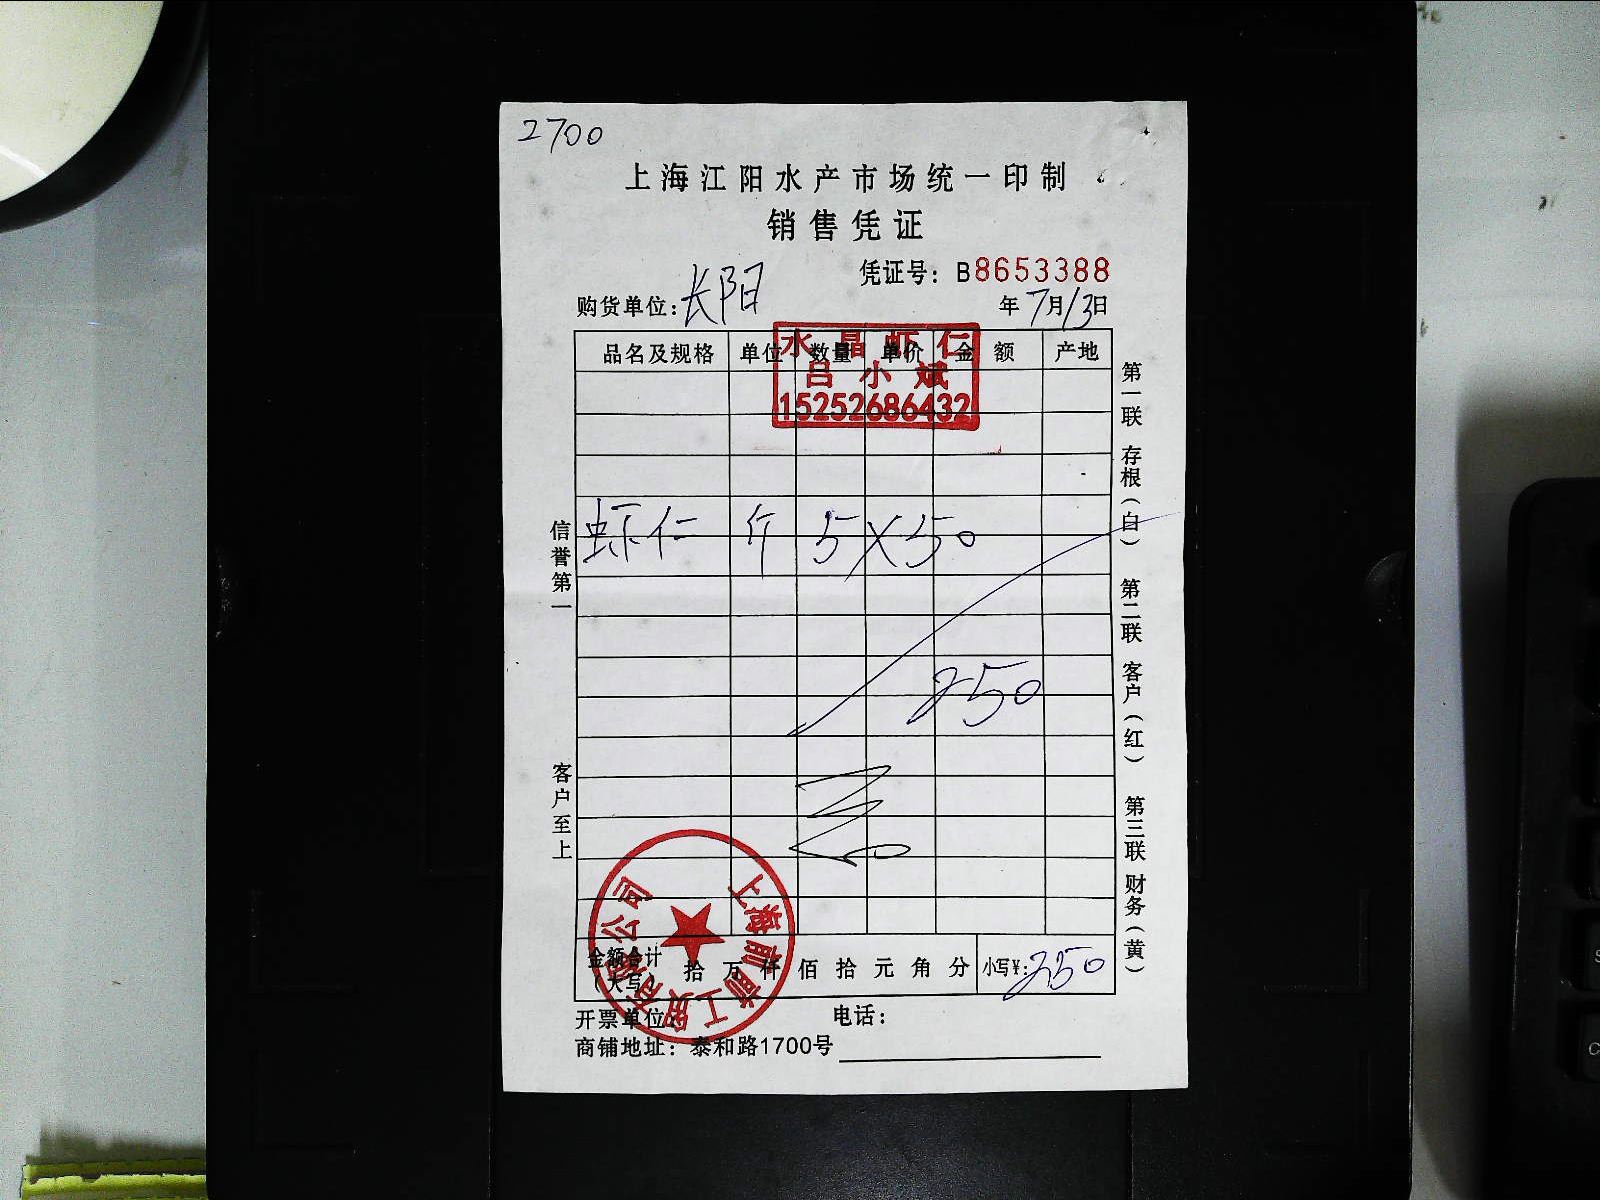 2700
上海江阳水产市场统一印制
销售凭证
凭证号：B8653388
购货单位：长阳
年7月13日
品名及规格 单位 数量 单价 金额 产地
水晶虾仁
吕小斌
15252686432
虾仁 斤 5×50
250
金额合计（大写） 拾万仟佰拾元角分 小写¥：250
开票单位： 电话：
商铺地址：泰和路1700号
信誉第一 客户至上
第一联 存根（白） 第二联 客户（红） 第三联 财务（黄）